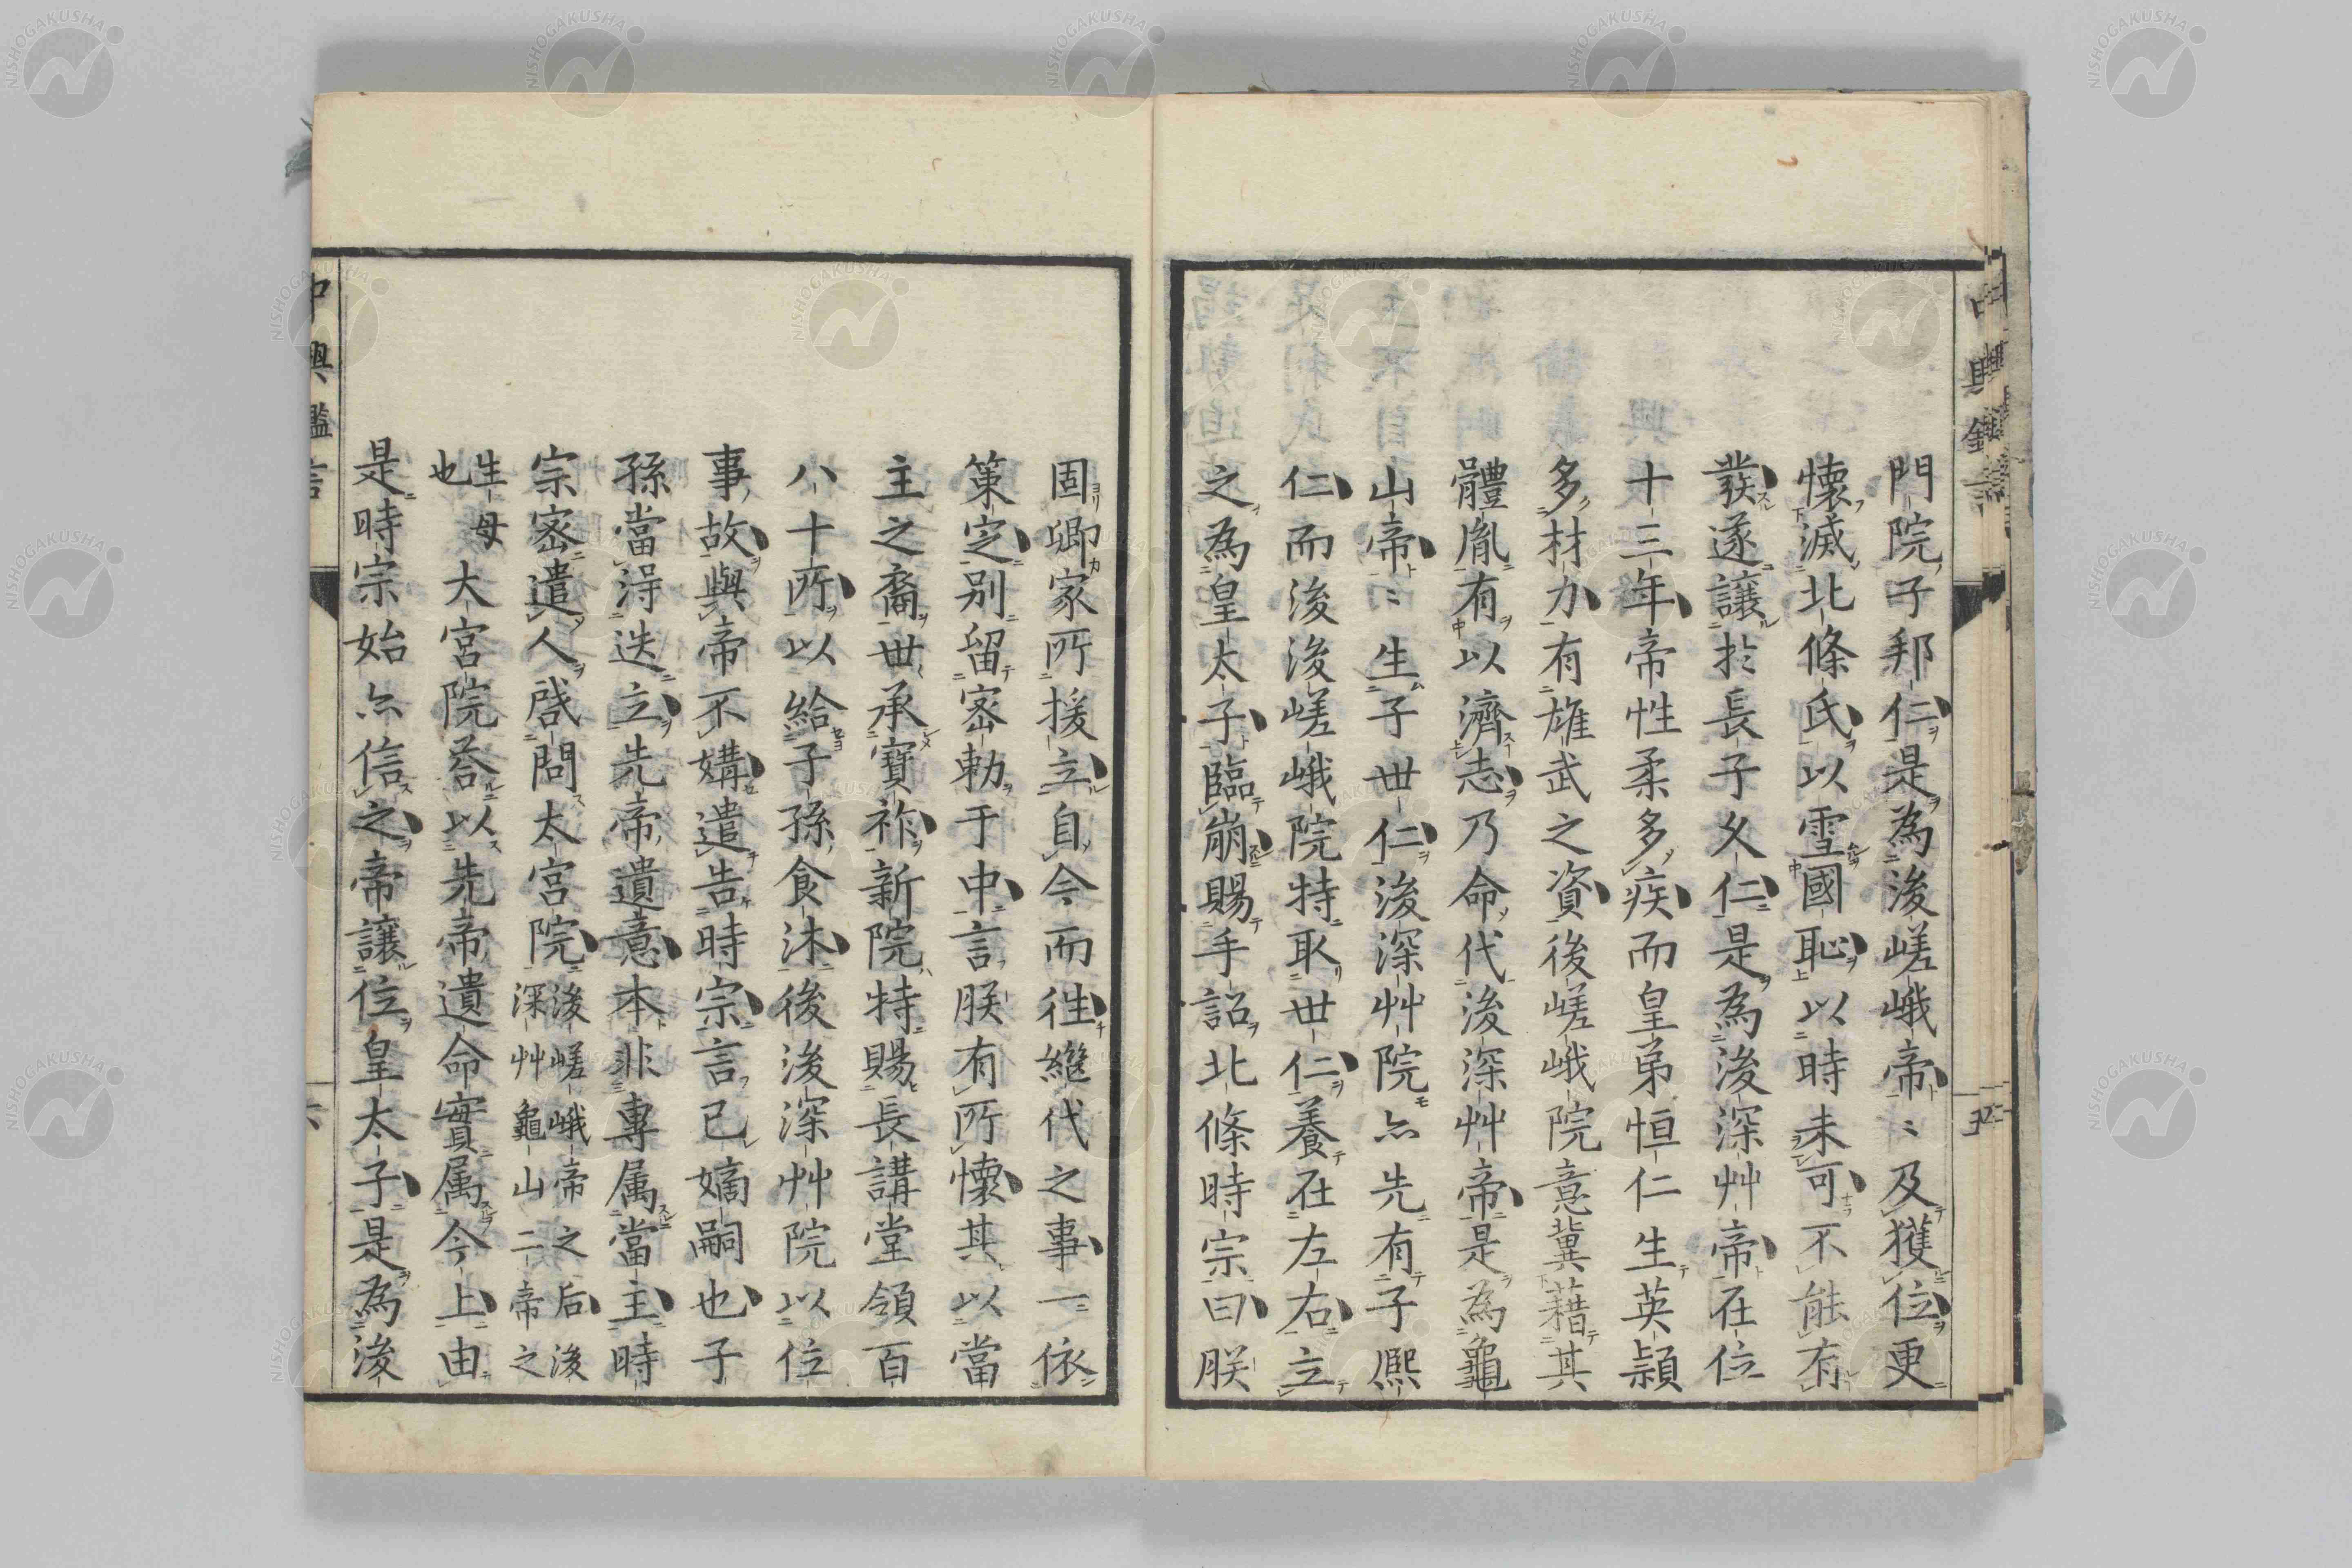 門院子邦仁是為後嵯峨帝〻及獲位更
懷滅北條氏以雪國恥以時未可不能有
發遂讓於長子久仁是為後深艸帝在位
十三年帝性柔多疾而皇弟恒仁生英穎
多材力有雄武之資後嵯峨院意冀藉其
體胤有以濟志乃命代後深艸帝是為龜
山帝〻生子世仁後深艸院亦先有子熈
仁而後後嵯峨院特取世仁養在左右立
之為皇太子臨崩賜手詔北條時宗曰朕
固卿家所援立自今而徃繼代之事一依
策定別留密勅于中言朕有所懷其以當
主之裔世承寶祚新院特賜長講堂領百
八十所以給子孫食沐後後深艸院以位
事故與帝不媾遣告時宗言已嫡嗣也子
孫當淂迭立先帝遺意本非專属當主時
宗密遣人啓問太宮院後嵯峨帝之后後
深艸龜山二帝之
生母
也
大宮院荅以先帝遺命實属今上由
是時宗始亦信之帝讓位皇太子是為後
中興鑑言
六
中興鑑言
五
NISHOGAKUSHA